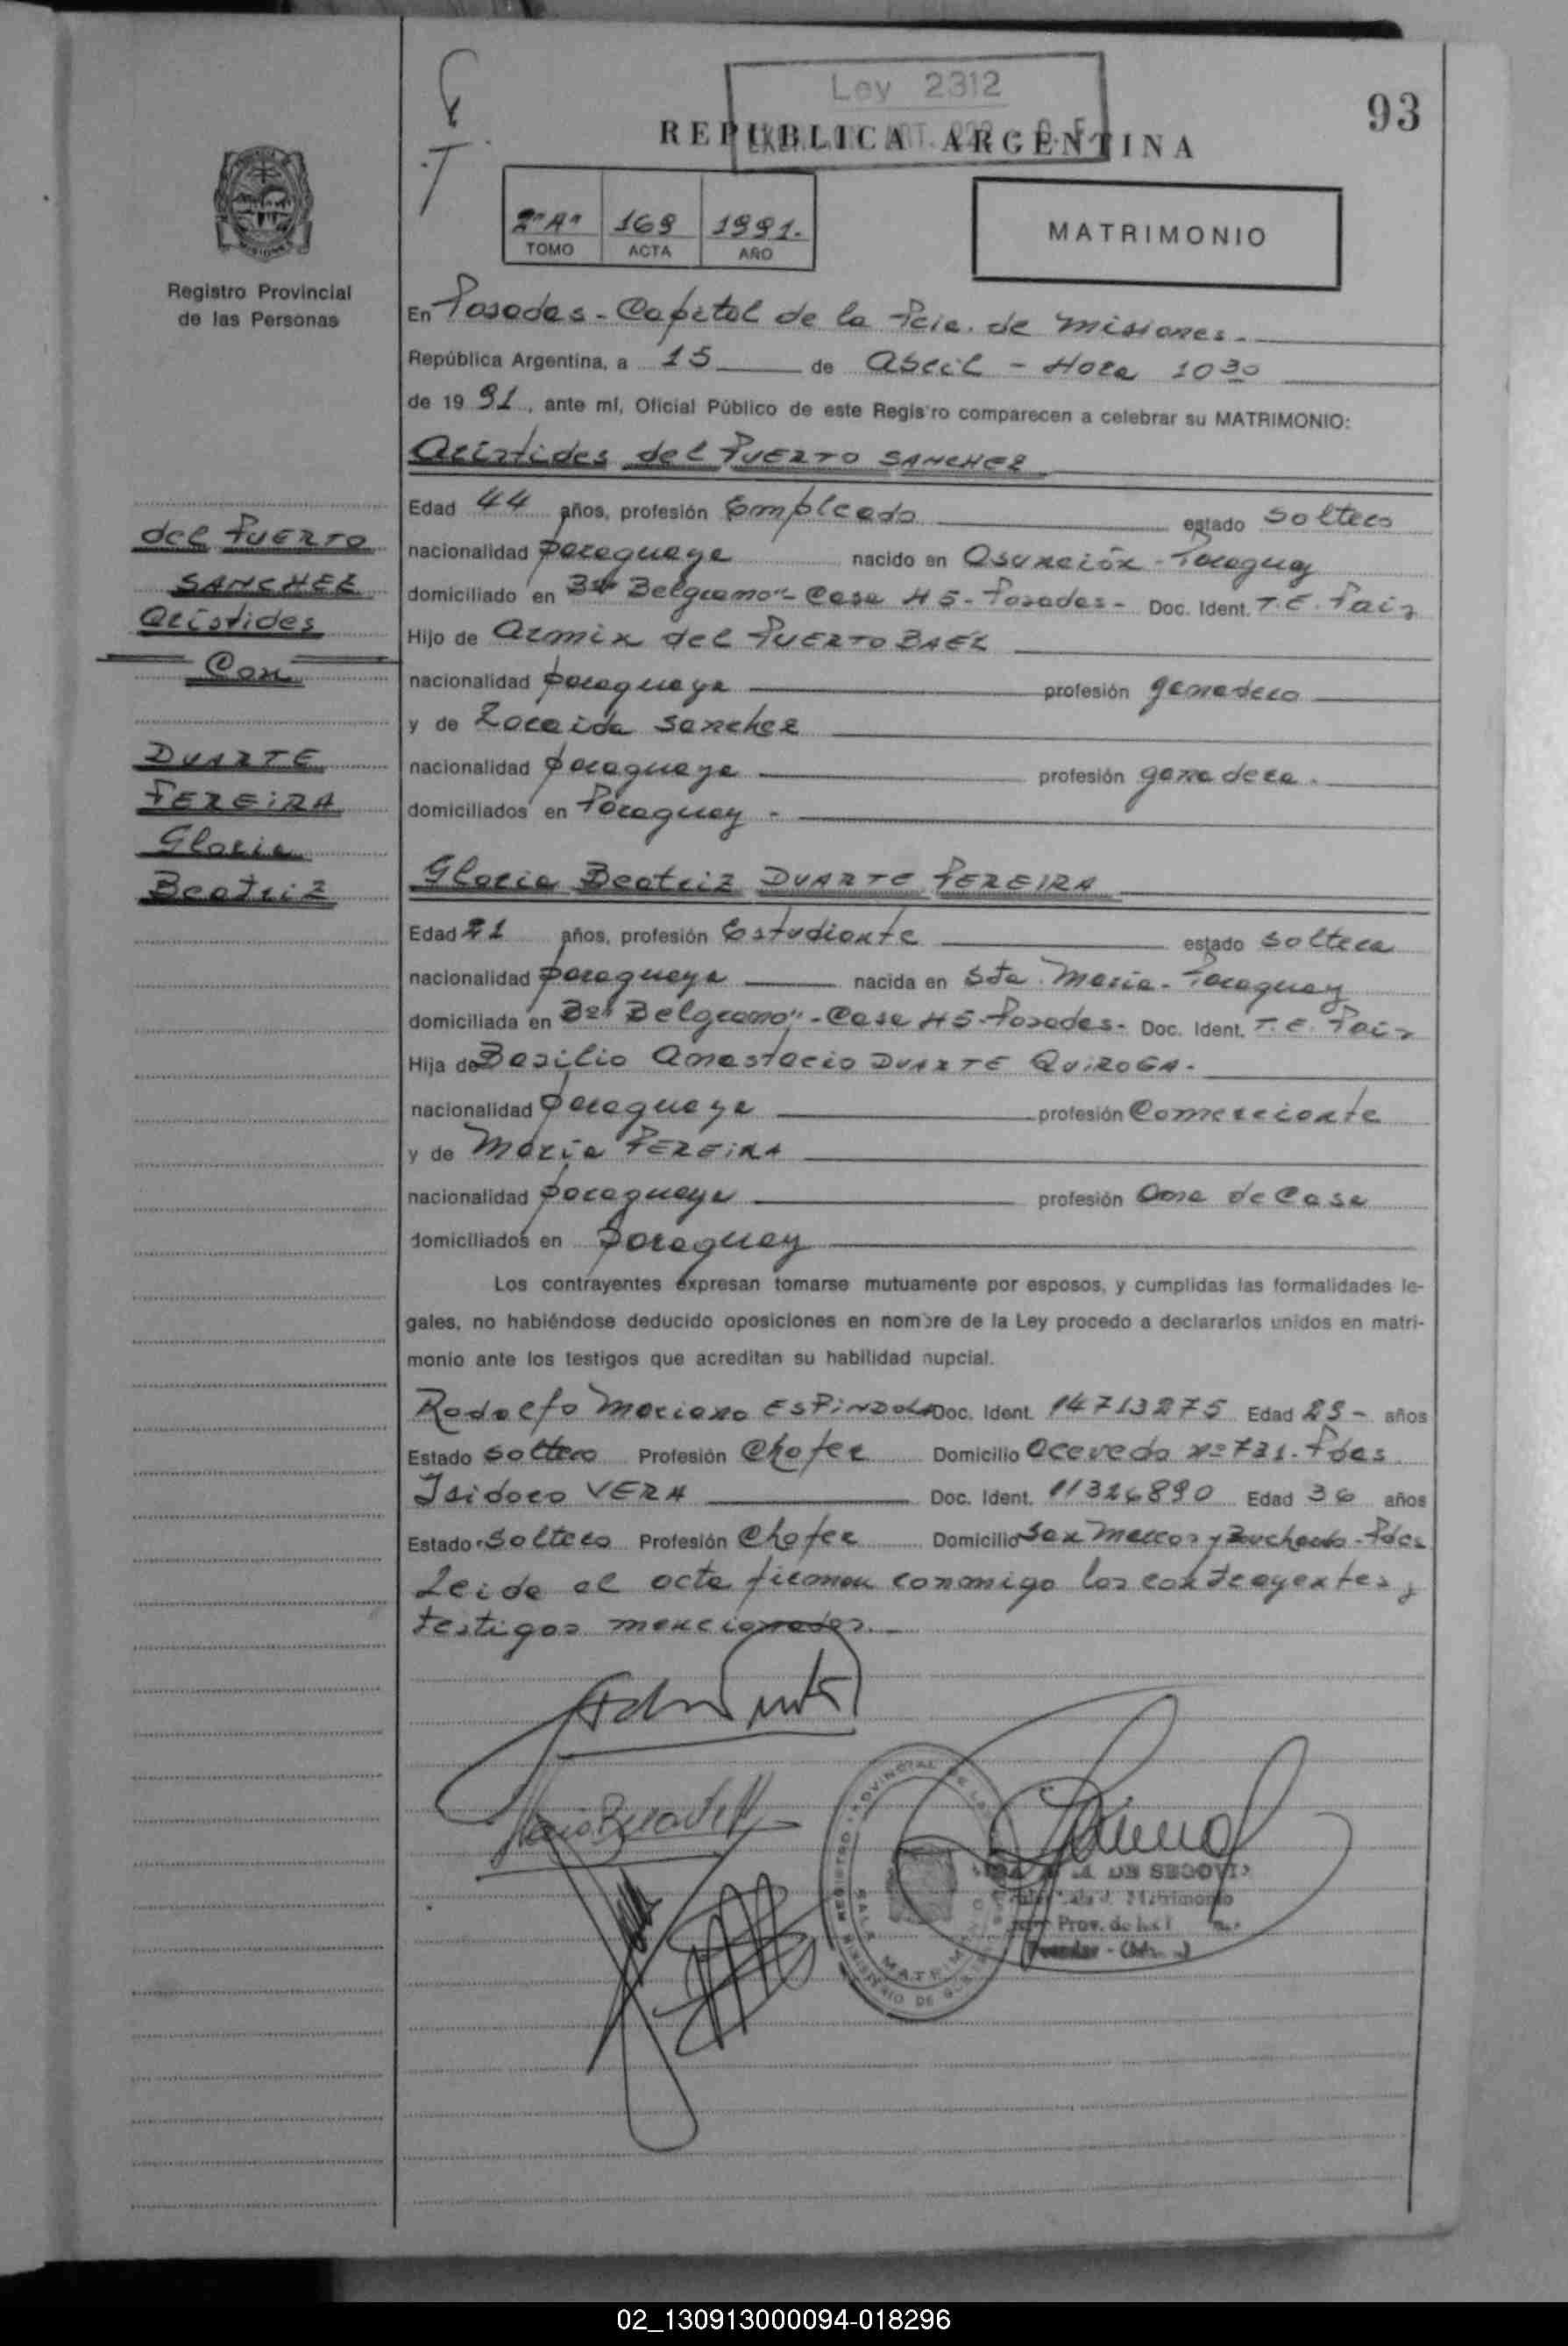 Ley 2312
93
REPUBLICA ARGENTINA
2º"A" 169 1991.
TOMO ACTA AÑO
MATRIMONIO
Registro Provincial
de las Personas
En Posadas - Capital de la Pcia. de Misiones.
República Argentina, a 15 de Abril - Hora 10 30
de 19 91, ante mí, Oficial Público de este Registro comparecen a celebrar su MATRIMONIO:
Arístides del PUERTO SANCHEZ
Edad 44 años, profesión Empleado estado soltero
nacionalidad paraguaya nacido en Asunción - Paraguay
domiciliado en Bº Belgrano" - Casa 45 - Posadas - Doc. Ident. T.E. País
Hijo de Armin del PUERTO BAEZ
nacionalidad paraguaya profesión ganadero
y de Zoraida Sanchez
nacionalidad paraguaya profesión ganadera.
domiciliados en Paraguay -
Gloria Beatriz DUARTE PEREIRA
Edad 21 años, profesión Estudiante estado soltera
nacionalidad paraguaya nacida en Sta. María - Paraguay
domiciliada en Bº Belgrano" - Casa 45 - Posadas - Doc. Ident. T.E. País
Hija de Basilio Anastacio DUARTE QUIROGA.
nacionalidad paraguaya profesión Comerciante
y de María PEREIRA
nacionalidad paraguaya profesión Ama de Casa
domiciliados en Paraguay
Los contrayentes expresan tomarse mutuamente por esposos, y cumplidas las formalidades le-
gales, no habiéndose deducido oposiciones en nombre de la Ley procedo a declararlos unidos en matri-
monio ante los testigos que acreditan su habilidad nupcial.
Rodolfo Mariano ESPINDOLA Doc. Ident. 14713275 Edad 29 - años
Estado soltero Profesión Chofer Domicilio Acevedo Nº 731. Pdas
Isidoro VERA Doc. Ident. 11326890 Edad 36 años
Estado Soltero Profesión Chofer Domicilio San Marcos y Bouchardo - Pdas
Leida el acta firman conmigo los contrayentes y
testigos mencionados.
del PUERTO
SANCHEZ
Arístides
Con
DUARTE
PEREIRA
Gloria
Beatriz
REGISTRO PROVINCIAL DE LAS
SALA MATRIMONIO
MINISTERIO DE
DE SEGOVIA
Matrimonio
Prov. de
02_130913000094-018296